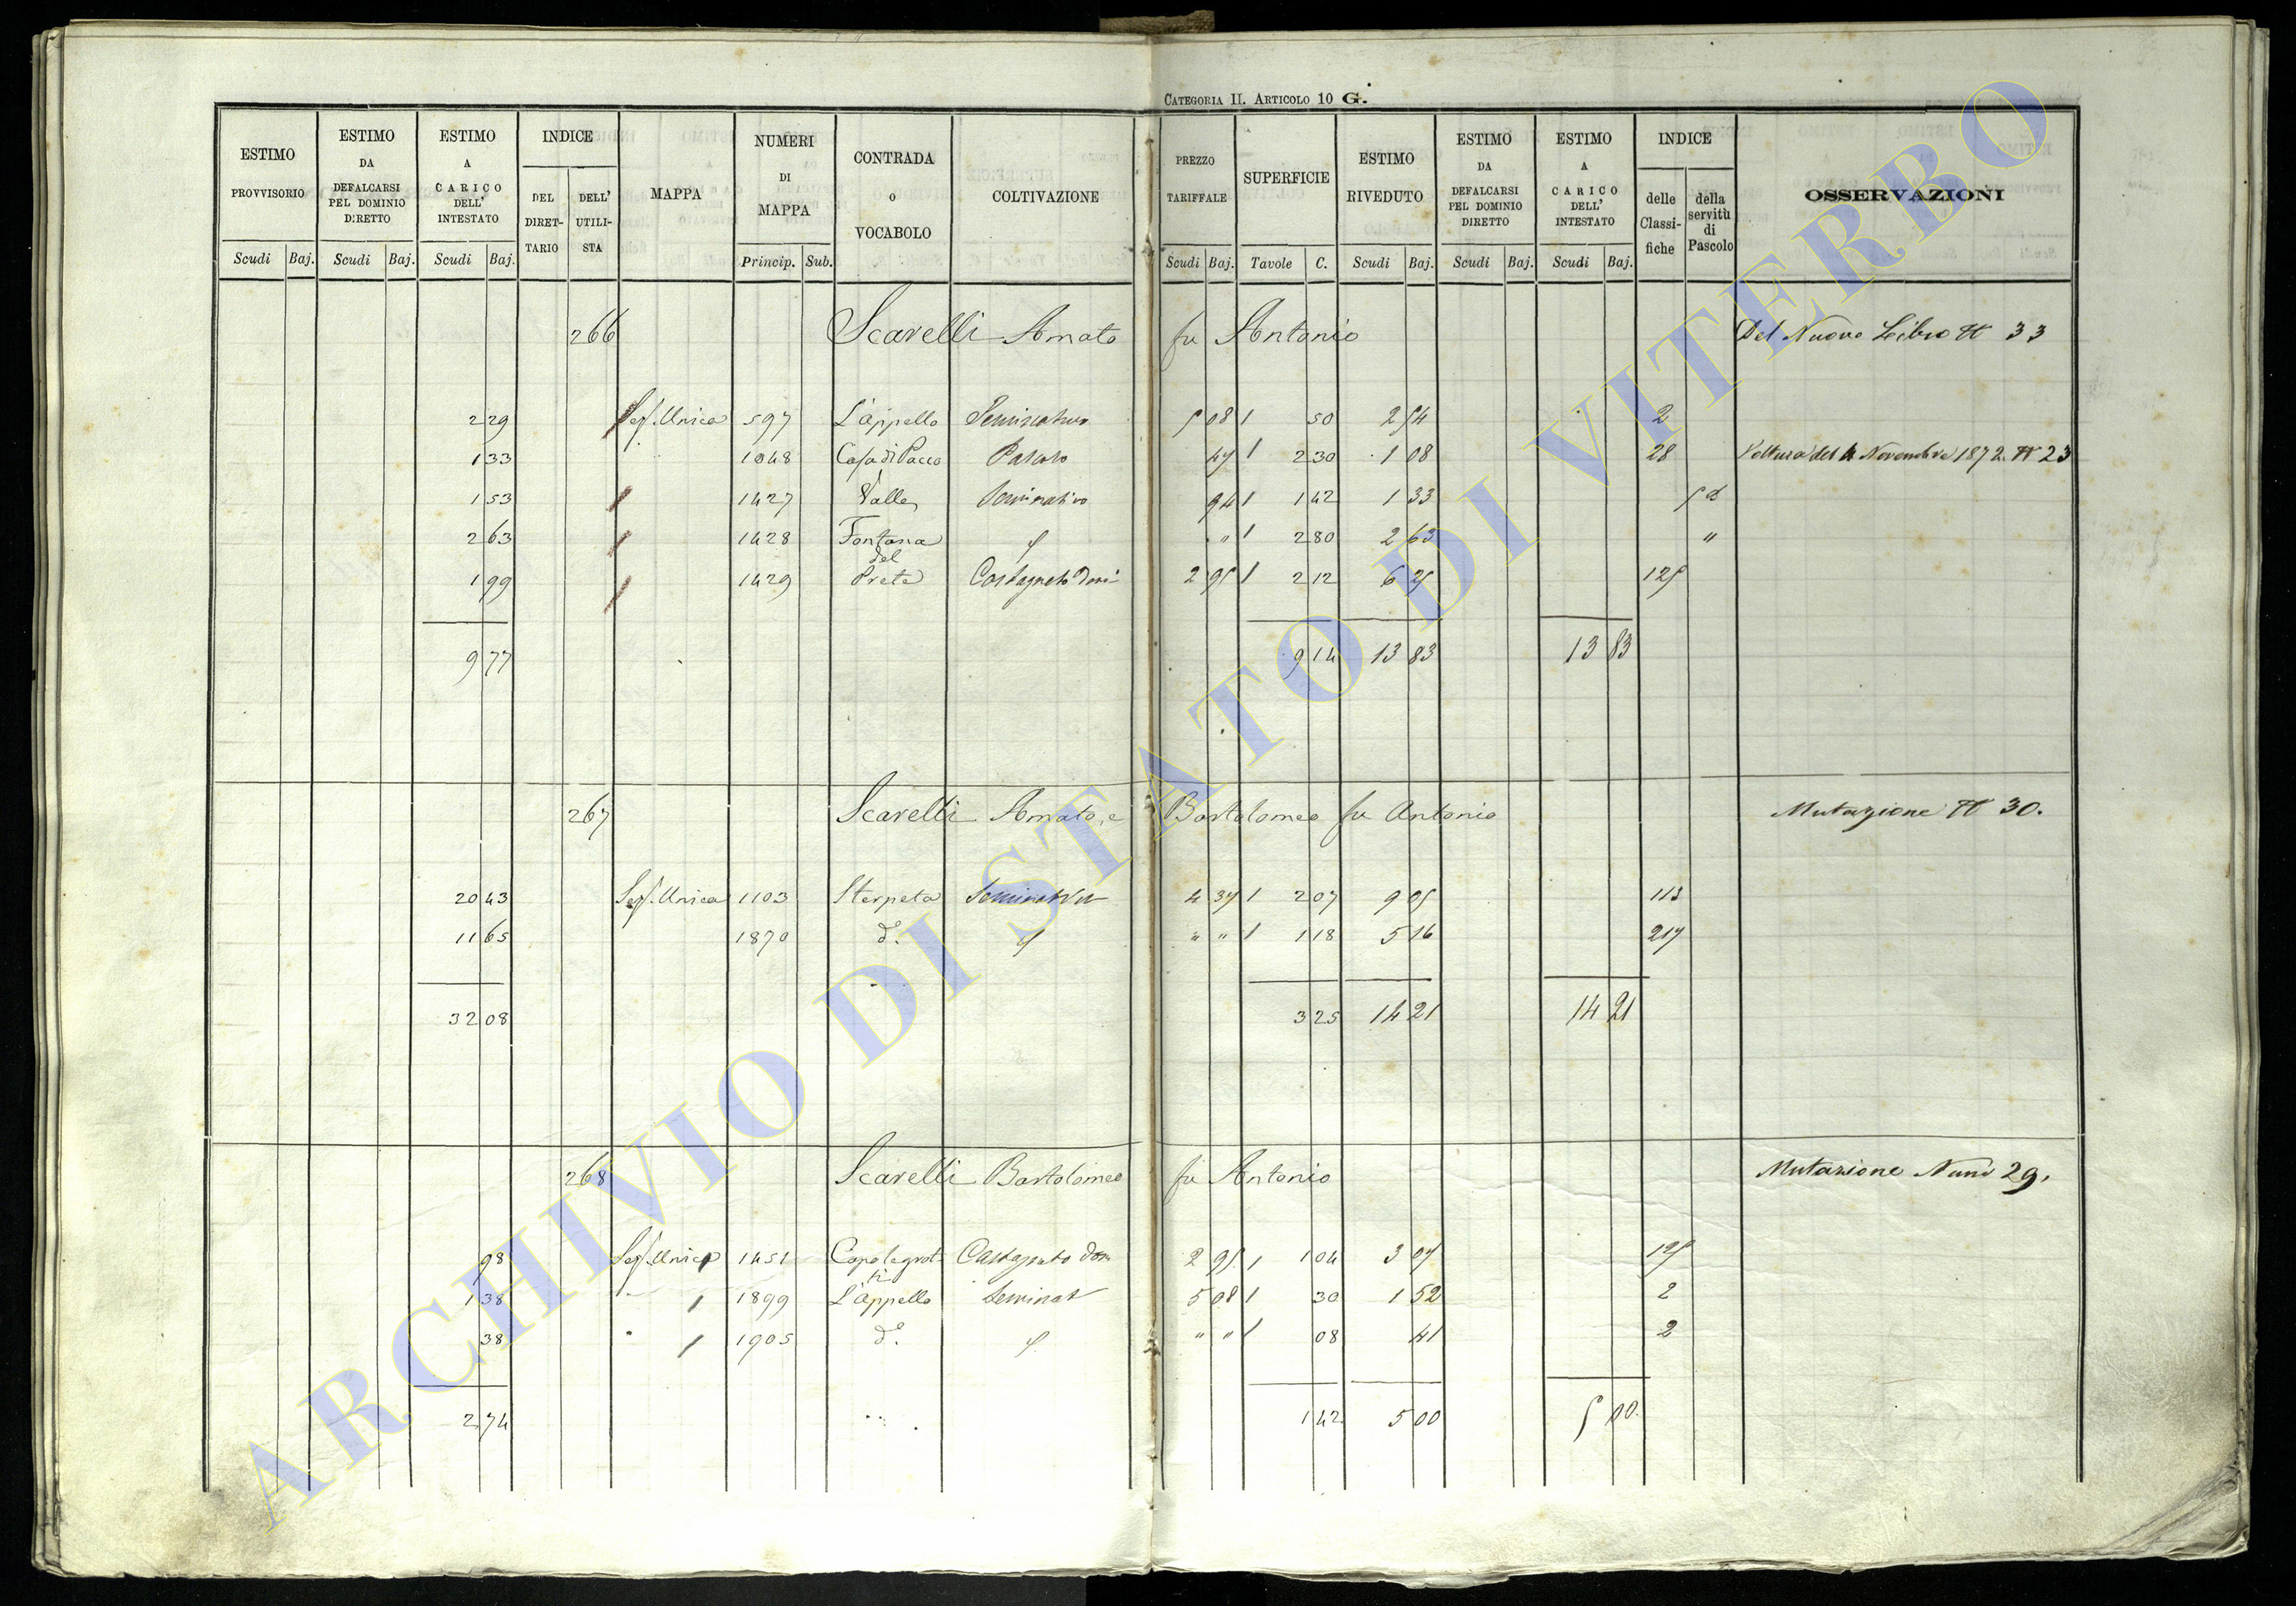 CATEGORIA II. ARTICOLO 10 G.
ESTIMO PROVVISORIO Scudi Baj.
ESTIMO DA DEFALCARSI PEL DOMINIO DIRETTO Scudi Baj.
ESTIMO A CARICO DELL' INTESTATO Scudi Baj.
INDICE DEL DIRETTARIO DELL' UTILISTA
MAPPA
NUMERI DI MAPPA Princip. Sub.
CONTRADA o VOCABOLO
COLTIVAZIONE
PREZZO TARIFFALE Scudi Baj.
SUPERFICIE Tavole C.
ESTIMO RIVEDUTO Scudi Baj.
ESTIMO DA DEFALCARSI PEL DOMINIO DIRETTO Scudi Baj.
ESTIMO A CARICO DELL' INTESTATO Scudi Baj.
INDICE delle Classifiche della servitù di Pascolo
OSSERVAZIONI
266 Scarelli Amato fu Antonio Del Nuovo Libro N 33
2 29 Sez. Unica 597 L'appello Seminativo 5 08 1 50 2 54 2
1 33 1048 Casa di Pacco Pascolo 47 1 2 30 1 08 28 Voltura del 4 Novembre 1872. N 23
1 53 1427 Valle Seminativo 94 1 1 42 1 33 5 d
2 63 1428 Fontana " 1 2 80 2 63 "
1 99 1429 del Prete Castagneto Dom 2 95 1 2 12 6 25 125
9 77 9 14 13 83 13 83
267 Scarelli Amato, e Bartolomeo fu Antonio Mutazione N 30.
20 43 Sez. Unica 1103 Sterpeta Seminativo 4 37 1 2 07 9 05 113
11 65 1870 do. " " 1 1 18 5 16 217
32 08 3 25 14 21 14 21
268 Scarelli Bartolomeo fu Antonio Mutazione Num 29.
98 Sez. Unica 1451 Capolegrotti Castagneto Dom 2 95 1 1 04 3 07 125
1 38 " 1899 L'appello Seminat 5 08 1 30 1 52 2
38 " 1905 do. " " 1 08 41 2
2 74 1 42 5 00 5 00
ARCHIVIO DI STATO DI VITERBO